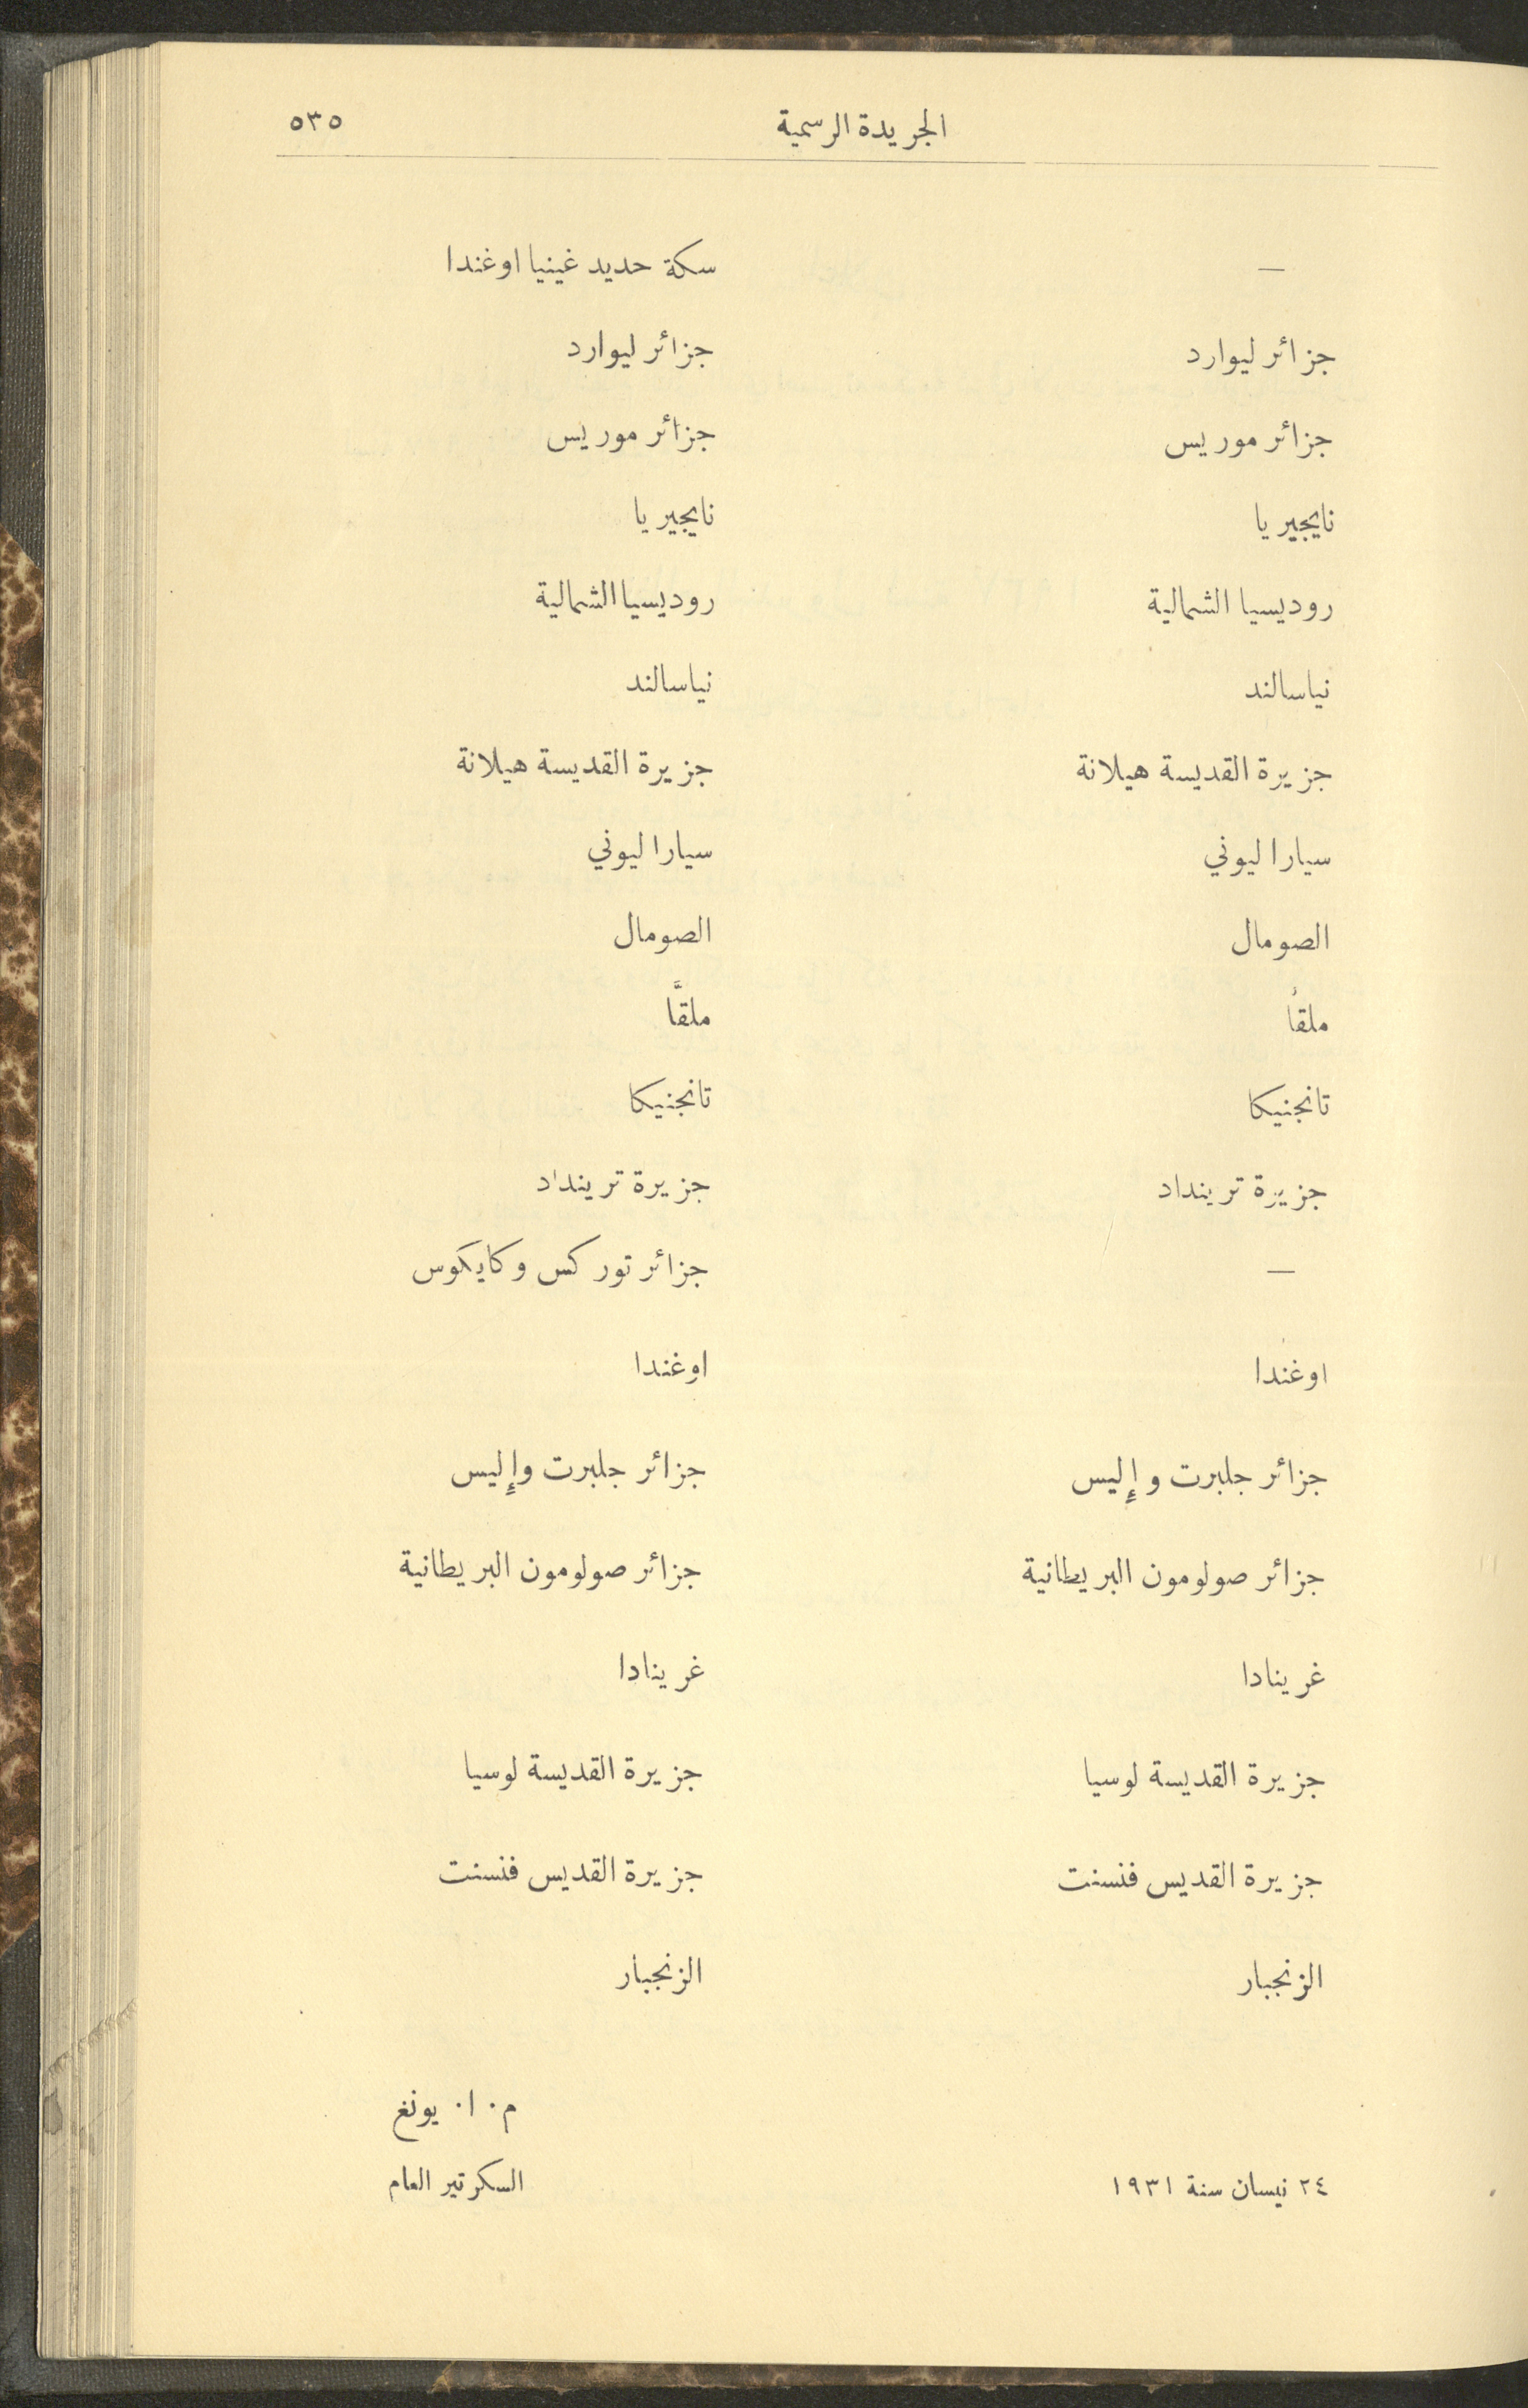 الجريدة الرسمية ٥٣٥
— سكة حديد غينيا اوغندا
جزائر ليوارد جزائر ليوارد
جزائر موريس جزائر موريس
نايجيريا نايجيريا
روديسيا الشمالية روديسيا الشمالية
نياسالند نياسالند
جزيرة القديسة هيلانة جزيرة القديسة هيلانة
سيارا ليوني سيارا ليوني
الصومال الصومال
ملقأ ملقَّا
تانجنيكا تانجنيكا
جزيرة ترينداد جزيرة ترينداد
— جزائر توركس وكايكوس
اوغندا اوغندا
جزائر جلبرت وإليس جزائر جلبرت وإليس
جزائر صولومون البريطانية جزائر صولومون البريطانية
غرينادا غرينادا
جزيرة القديسة لوسيا جزيرة القديسة لوسيا
جزيرة القديس فنسنت جزيرة القديس فنسنت
الزنجبار الزنجبار
م. ا. يونغ
٢٤ نيسان سنة ١٩٣١ السكرتير العام